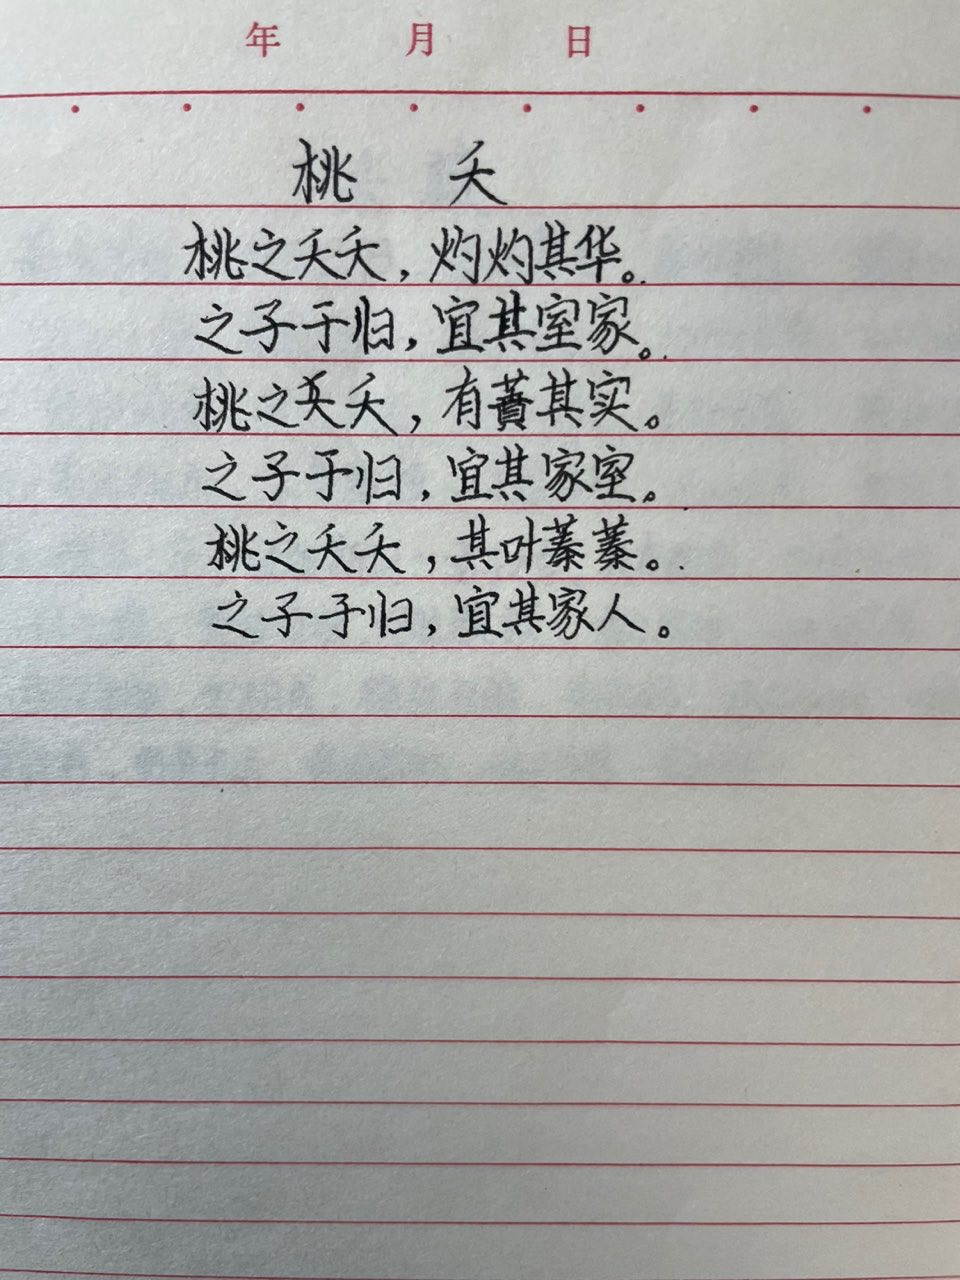 年 月 日
桃 夭
桃之夭夭，灼灼其华。
之子于归，宜其室家。
桃之夭夭，有蕡其实。
之子于归，宜其家室。
桃之夭夭，其叶蓁蓁。
之子于归，宜其家人。